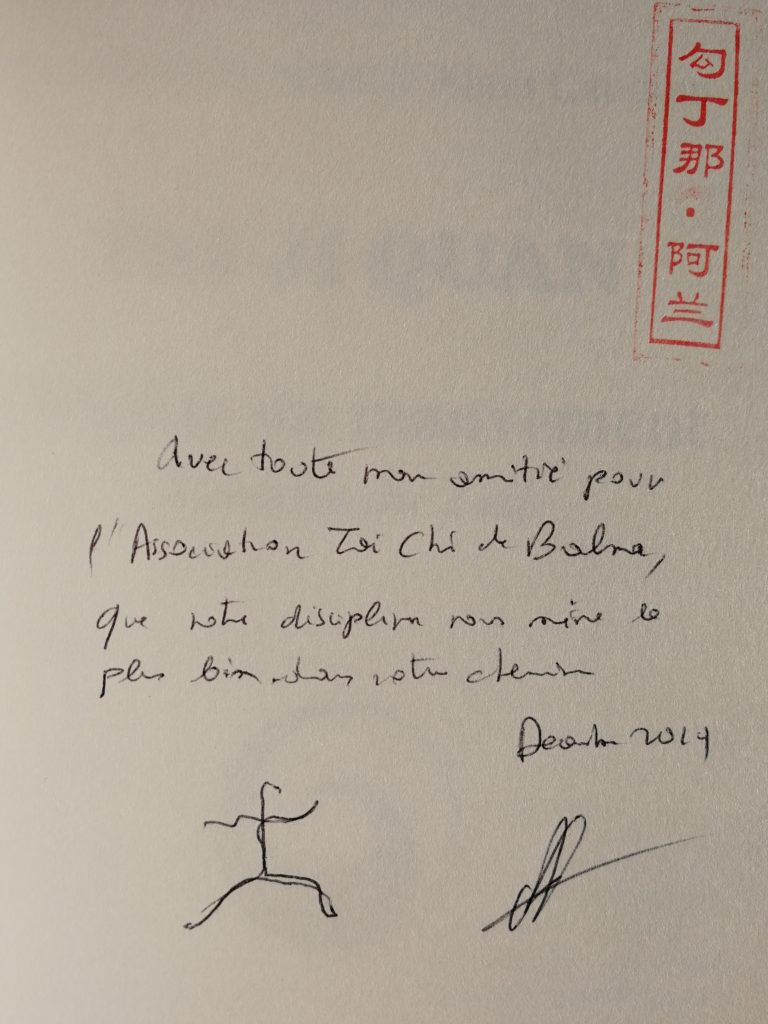 勾丁那·阿兰
Avec toute mon amitié pour
l'Association Tai Chi de Balma,
que notre discipline nous mène le
plus loin dans votre chemin
Décembre 2019